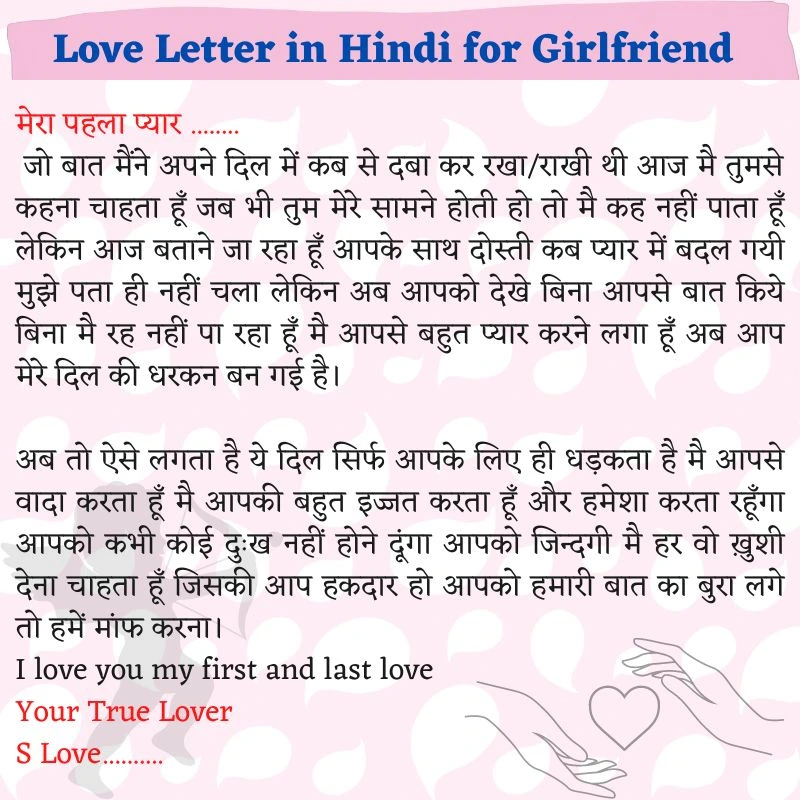 Love Letter in Hindi for Girlfriend
मेरा पहला प्यार ........
जो बात मैंने अपने दिल में कब से दबा कर रखा/राखी थी आज मै तुमसे
कहना चाहता हूँ जब भी तुम मेरे सामने होती हो तो मै कह नहीं पाता हूँ
लेकिन आज बताने जा रहा हूँ आपके साथ दोस्ती कब प्यार में बदल गयी
मुझे पता ही नहीं चला लेकिन अब आपको देखे बिना आपसे बात किये
बिना मै रह नहीं पा रहा हूँ मै आपसे बहुत प्यार करने लगा हूँ अब आप
मेरे दिल की धरकन बन गई है।
अब तो ऐसे लगता है ये दिल सिर्फ आपके लिए ही धड़कता है मै आपसे
वादा करता हूँ मै आपकी बहुत इज्जत करता हूँ और हमेशा करता रहूँगा
आपको कभी कोई दुःख नहीं होने दूंगा आपको जिन्दगी मै हर वो ख़ुशी
देना चाहता हूँ जिसकी आप हकदार हो आपको हमारी बात का बुरा लगे
तो हमें मांफ करना।
I love you my first and last love
Your True Lover
S Love..........